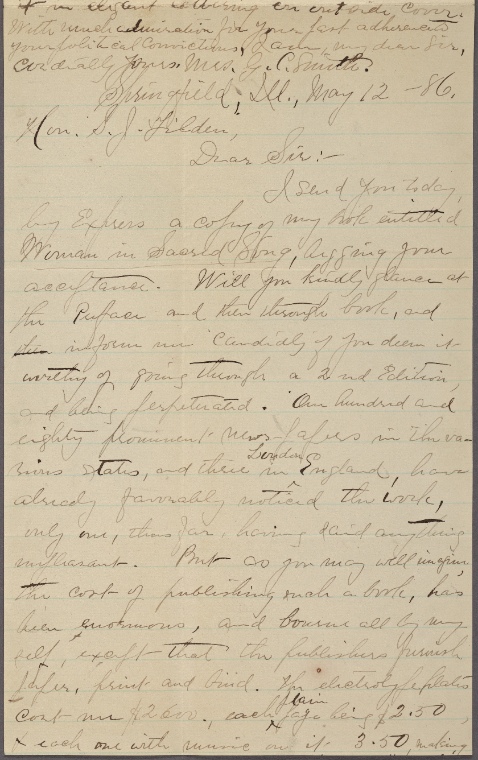 it in elegant lettering on outside cover.
With much admiration for your fast adherence
your political convictions, I am, my dear Sir,
Cordially yours, Mrs. G. C. Smith.
Springfield, Ill., May 12 -86.
Hon. S. J. Tilden,
Dear Sir:-
I send you today,
by Express a copy of my book entitled
Woman in Sacred Song, begging your
acceptance. Will you kindly glance at
the Preface and then through book, and
then inform me candidly if you deem it
worthy of going through a 2nd Edition,
and being perpetuated. One hundred and
eighty prominent news-papers in the va-
rious States, and three in London England, have
already favorably noticed the work,
only one, thus far, having said anything
unpleasant. But as you may well imagine,
the cost of publishing such a book, has
been enormous, and bourne all by my
self, except that the publishers furnish
paper, print and bind. The electrotype plates
cost me $2600., each plain page being $2.50,
& each one with music on it 3.50, making